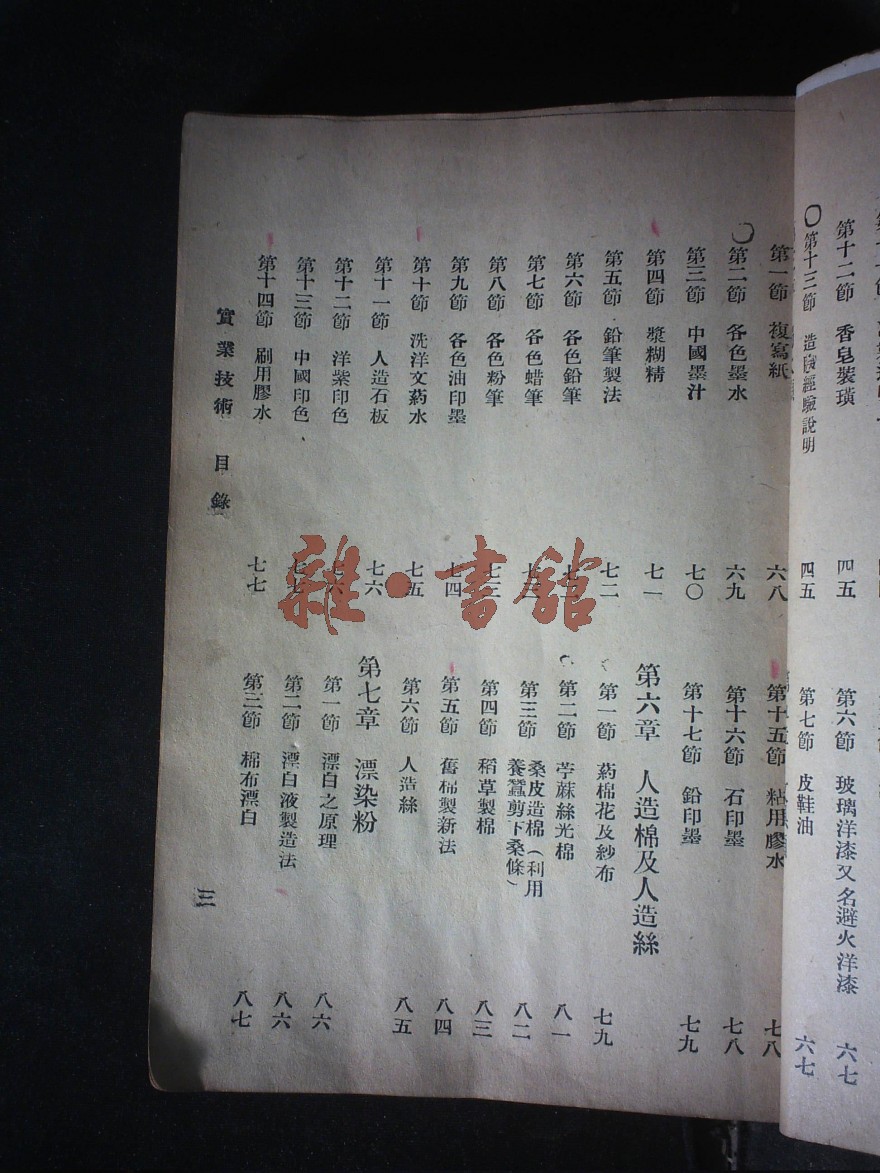 第十二節 香皂裝璜 四五
第十三節 造 經驗說明 四五
第六節 玻璃洋漆又名避火洋漆 六七
第七節 皮鞋油 六七
第一節 複寫紙 六八
第二節 各色墨水 六九
第三節 中國墨汁 七〇
第四節 漿糊精 七一
第五節 鉛筆製法 七二
第六節 各色鉛筆
第七節 各色蜡筆
第八節 各色粉筆 七三
第九節 各色油印墨 七四
第十節 洗洋文葯水 七五
第十一節 人造石板 七六
第十二節 洋紫印色 七六
第十三節 中國印色
第十四節 刷用膠水 七七
第十五節 粘用膠水 七八
第十六節 石印墨 七八
第十七節 鉛印墨 七九
第六章 人造棉及人造絲
第一節 葯棉花及紗布 七九
第二節 苧蔴絲光棉 八一
第三節 桑皮造棉(利用
養蠶剪下桑條) 八二
第四節 稻草製棉 八三
第五節 舊棉製新法 八四
第六節 人造絲 八五
第七章 漂染粉
第一節 漂白之原理 八六
第二節 漂白液製造法 八六
第三節 棉布漂白 八七
實業技術 目錄
三
雜·書館